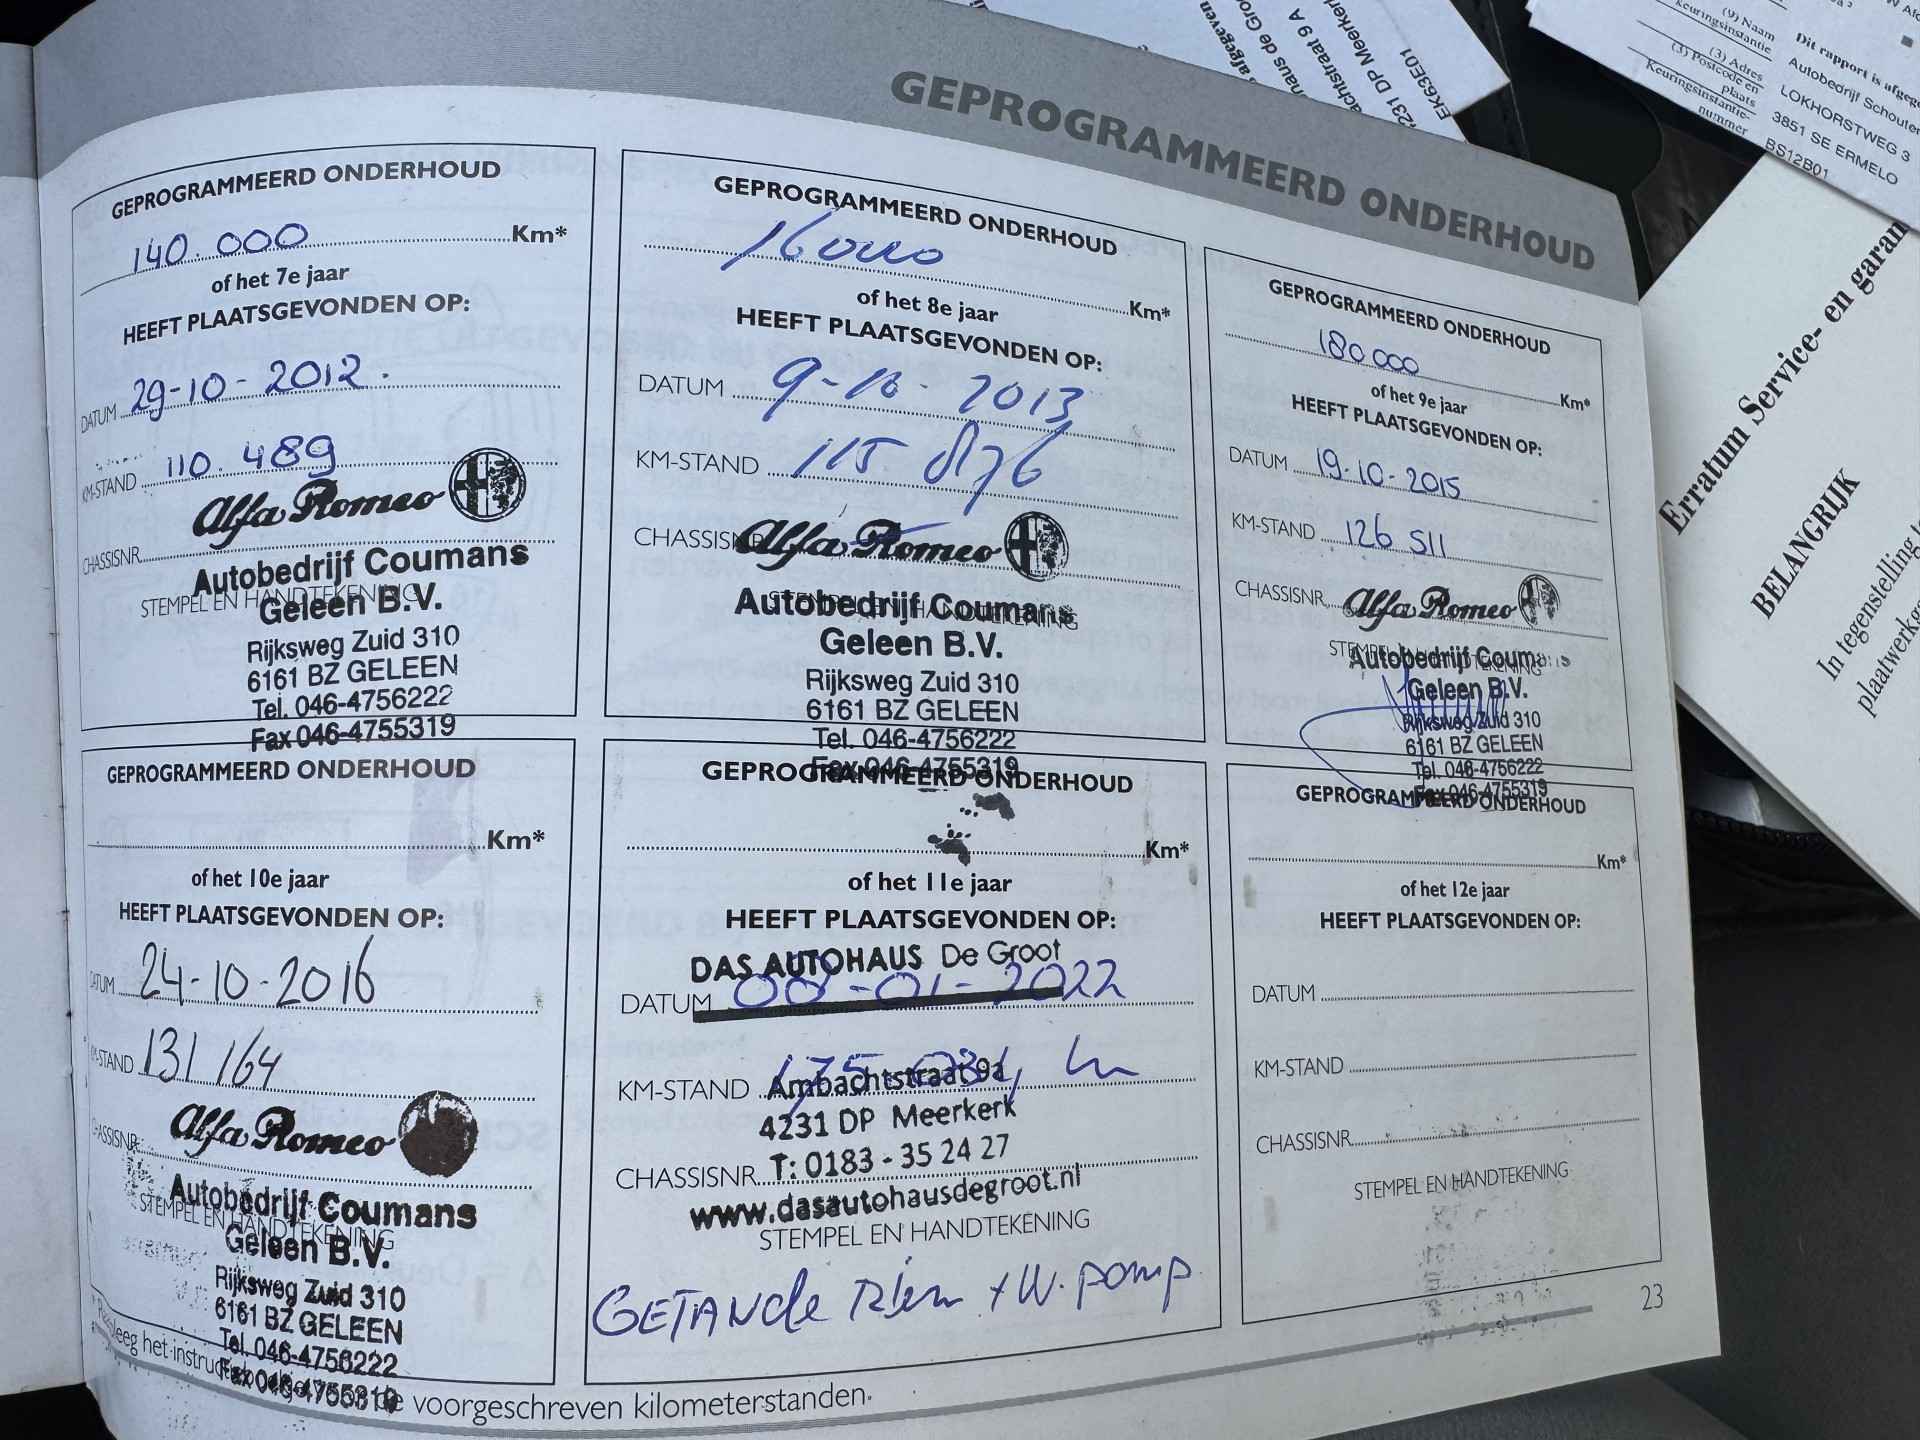 GEPROGRAMMEERD ONDERHOUD
GEPROGRAMMEERD ONDERHOUD
140.000 Km*
of het 7e jaar
HEEFT PLAATSGEVONDEN OP:
DATUM 29-10-2012.
KM-STAND 110.489
Alfa Romeo
CHASSISNR.
Autobedrijf Coumans
STEMPEL EN HANDTEKENING
Geleen B.V.
Rijksweg Zuid 310
6161 BZ GELEEN
Tel. 046-4756222
Fax 046-4755319
GEPROGRAMMEERD ONDERHOUD
Km*
of het 8e jaar
HEEFT PLAATSGEVONDEN OP:
DATUM 9-10-2013
KM-STAND 115 876
CHASSISNR
Alfa Romeo
Autobedrijf Coumans
STEMPEL EN HANDTEKENING
Geleen B.V.
Rijksweg Zuid 310
6161 BZ GELEEN
Tel. 046-4756222
Fax 046-4755319
GEPROGRAMMEERD ONDERHOUD
180.000 Km*
of het 9e jaar
HEEFT PLAATSGEVONDEN OP:
DATUM 19-10-2015
KM-STAND 126 511
CHASSISNR.
Alfa Romeo
STEMPEL EN HANDTEKENING
Autobedrijf Coumans
Geleen B.V.
Rijksweg Zuid 310
6161 BZ GELEEN
Tel. 046-4756222
Fax 046-4755319
GEPROGRAMMEERD ONDERHOUD
Km*
of het 10e jaar
HEEFT PLAATSGEVONDEN OP:
DATUM 24-10-2016
KM-STAND 131 164
Alfa Romeo
CHASSISNR.
Autobedrijf Coumans
STEMPEL EN HANDTEKENING
Geleen B.V.
Rijksweg Zuid 310
6161 BZ GELEEN
Tel. 046-4756222
Fax 046-4755319
GEPROGRAMMEERD ONDERHOUD
Km*
of het 11e jaar
HEEFT PLAATSGEVONDEN OP:
DAS AUTOHAUS De Groot
DATUM 08-01-2022
KM-STAND 175.034
Ambachtstraat 9a
4231 DP Meerkerk
CHASSISNR. T: 0183 - 35 24 27
www.dasautohausdegroot.nl
STEMPEL EN HANDTEKENING
GETANde Riem + W. pomp
GEPROGRAMMEERD ONDERHOUD
Km*
of het 12e jaar
HEEFT PLAATSGEVONDEN OP:
DATUM
KM-STAND
CHASSISNR.
STEMPEL EN HANDTEKENING
de voorgeschreven kilometerstanden.
23
DP Meerkerk
EK63E01
(9) Naam
keuringsinstantie
(3) Adres
(3) Postcode en
plaats
Keuringsinstantie-
nummer
Dit rapport is
Autobedrijf Schouten
LOKHORSTWEG 3
3851 SE ERMELO
BS12B01
Erratum Service- en
BELANGRIJK
In tegenstelling